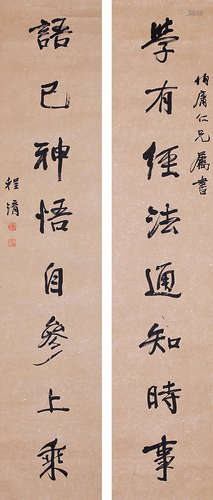 學有經法通知時事
伯庸仁兄屬書
語已神悟自參上乘
程淯